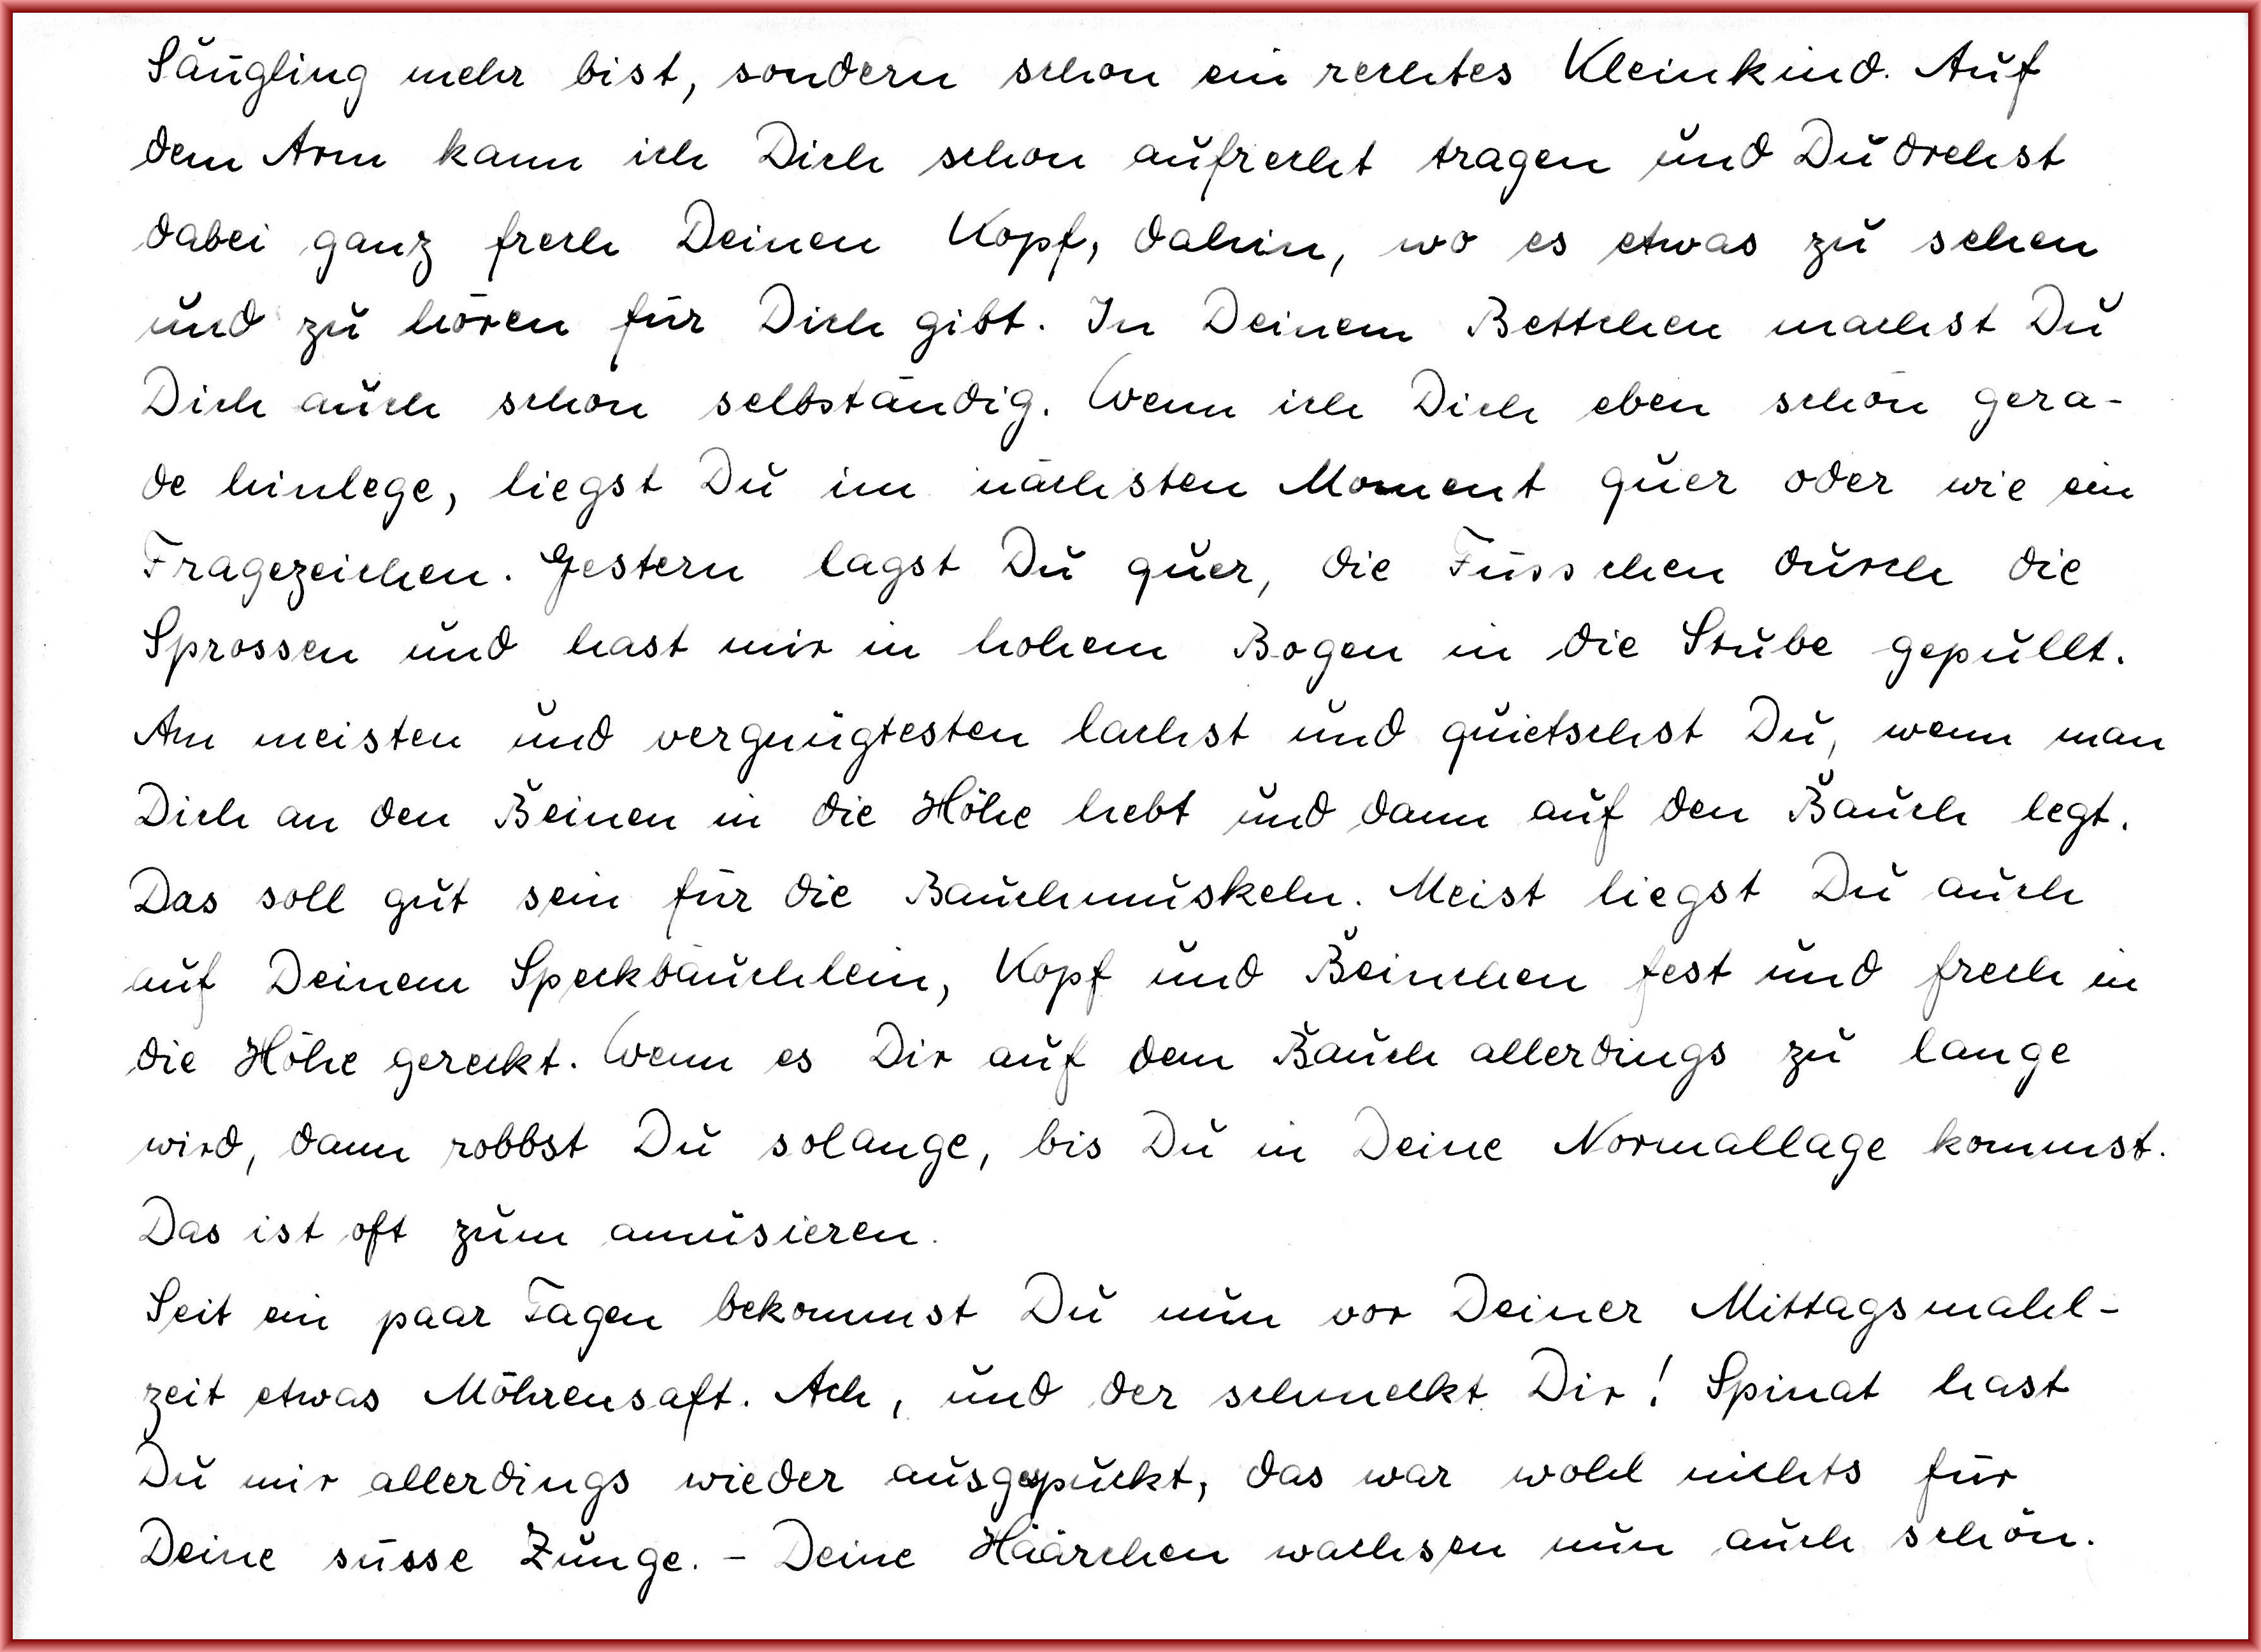 Säugling mehr bist, sondern schon ein rechtes Kleinkind. Auf
dem Arm kann ich Dich schon aufrecht tragen und Du drehst
dabei ganz frech Deinen Kopf, dahin, wo es etwas zu sehen
und zu hören für Dich gibt. In Deinem Bettchen machst Du
Dich auch schon selbständig. Wenn ich Dich eben schön gera-
de hinlege, liegst Du im nächsten Moment quer oder wie ein
Fragezeichen. Gestern lagst Du quer, die Füsschen durch die
Sprossen und hast mir in hohem Bogen in die Stube gepullt.
Am meisten und vergnügtesten lachst und quietschst Du, wenn man
Dich an den Beinen in die Höhe hebt und dann auf den Bauch legt.
Das soll gut sein für die Bauchmuskeln. Meist liegst Du auch
auf Deinem Speckbäuchlein, Kopf und Beinchen fest und frech in
die Höhe gereckt. Wenn es Dir auf dem Bauch allerdings zu lange
wird, dann robbst Du solange, bis Du in Deine Normallage kommst.
Das ist oft zum amüsieren.
Seit ein paar Tagen bekommst Du nun vor Deiner Mittagsmahl-
zeit etwas Möhrensaft. Ach, und der schmeckt Dir! Spinat hast
Du mir allerdings wieder ausgespuckt, das war wohl nichts für
Deine süsse Zunge. - Deine Häärchen wachsen nun auch schön.